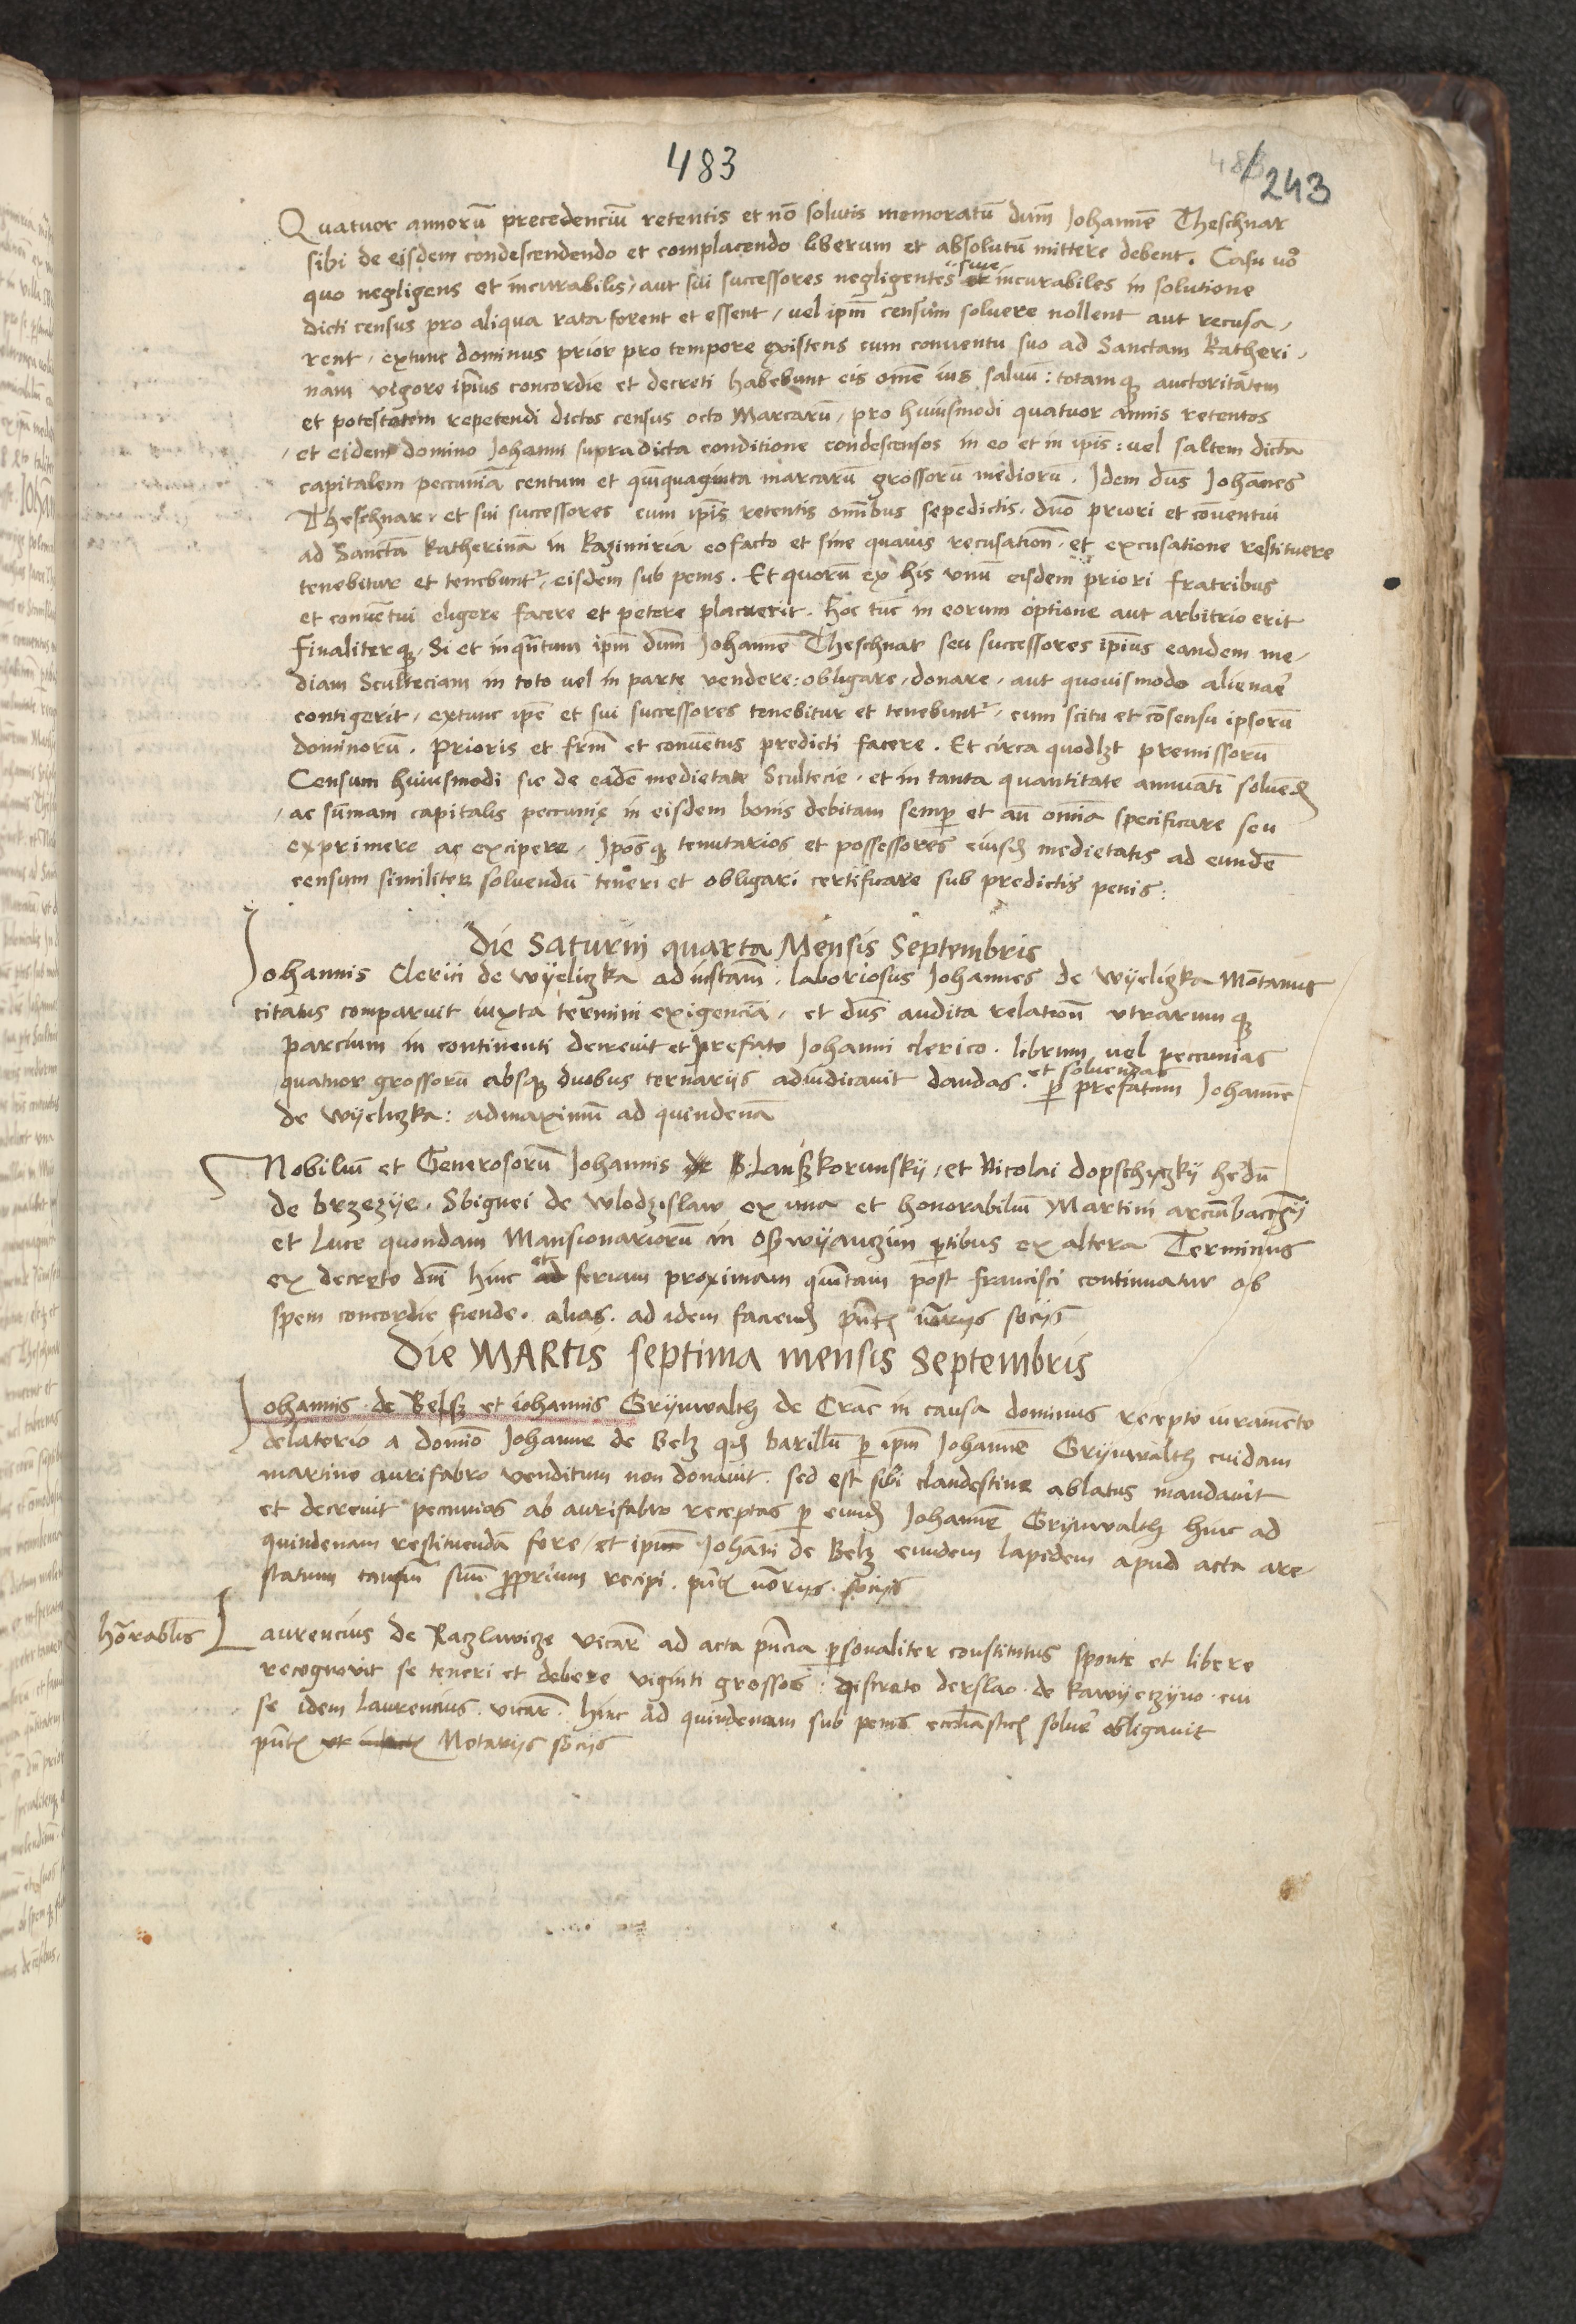 483
483/243
Quatuor annorū precedenciū retentis et nō solutis memoratū dn̄m Johannē Theschnar
sibi de eisdem condescendendo et complacendo liberum et absolutū mittere debent. Casu vo
quo negligens et incurabilis, aut sui successores negligentes siue incurabiles in solutione
dicti census pro aliqua rata forent et essent, vel ip̄m censum soluere nollent aut recusa,
rent, extunc dominus prior pro tempore existens cum conuentu suo ad Sanctam Katheri,
nam vigore ip̄ius concordie et decreti habebunt eis om̄e ius saluū: totamq; auctoritatem
et potestatem repetendi dictos census octo Marcarū, pro huiusmodi quatuor annis retentos
, et eidem domino Johanni supradicta conditione condescensos in eo et in ip̄is: vel saltem dicta
capitalem peccuniā centum et quīquaginta marcarū grossorū mediorū. Idem dn̄s Johānes
Theschnar, et sui successores cum ip̄is retentis om̄ibus sepedictis. dn̄o priori et cōuentui
ad Sanctā Katherinā in Kazimiria eo facto et sine quauis recusation̄, et excusatione restituere
tenebitur et tenebunt᷑, eisdem sub penis. Et quorū ex his vnū eisdem priori fratribus
et conuētui eligere facere et petere placuerit. Hoc tūc in eorum optione aut arbitrio erit
finaliterq;. Si et inquātum ip̄m dn̄m Johannē Theschnar seu successores ip̄ius eandem me,
diam Sculteciam in toto vel in parte vendere: obligare, donare, aut quouismodo alienar̄
contigerit, extunc ip̄e et sui successores tenebitur et tenebunt᷑, cum scitu et cōsensu ipsorū
dominorū. Prioris et fr̄m et conuētus predicti facere. Et circa quodlȝt premissorū
Censum huiusmodi sic de eādē medietate Scultecie, et in tanta quantitate annuatī soluēd
, ac sūmam capitalis peccunię in eisdem bonis debitam semp̱ et an̄ om̄ia specificare seu
exprimere ac excipere, Ip̄osq; tenutarios et possessores eiusd medietatis ad eundē
censum similiter soluendū teneri et obligari certificare sub predictis penis:
Die Saturni quarta Mensis Septembris
Johannis Clerici de Wyeliczka ad instan̄. laboriosus Johannes de Wyeliczka Mōtanus
citatus comparuit iuxta termini exigenciā, et dn̄s audita relation̄ vtrarumq;
parcium in continenti decreuit et prefato Johanni clerico. librum vel peccunias
quatuor grossorū absq; duobus ternarijs adiudicauit dandas et soluendas p̱ prefatum Johannē
de Wyeliczka: ad maximū ad quindenā
Nobiliū et Generosorū Johannis Lanßkorunsky, et Nicolai dopschyczky hedū
de brzezye. Sbignei de Wlodzislaw ex una et honorabiliū Martini
et Luce quondam Mansionariorū in Oßwyanczim p̱tibus ex altera Terminus
ex decreto dn̄i hinc et feriam proximam quītam post francisci continuatur ob
spem concordie fiende. alias. ad idem faciend p̄nt noriis socijs
Die MARtis septima mensis Septembris
Johannis de Belß et iohannis Grynwalth de Crac̄ in causa dominus recepto iuramēto
delatorio a domīo Johanne de Belz qd barillū p̱ ip̄m Johannē Grynwalth cuidam
martino aurifabro venditum non donauit. sed est sibi clandestine ablatus mandauit
et decreuit peccunias ab aurifabro receptas p̱ eund Johannē Grynwalth hinc ad
quindenam restituendā fore, et ipsum Johān̄i de Belz eundem lapidem apud acta are,
statum tanq̄ȝ suū proprium recipi. p̄nt noriis. socijs
hōrabil̄is Laurencius de Raczlawicze vicar̄ ad acta p̄ncia p̱sonaliter constitutus sponte et libere
recognouit se teneri et debere viginti grossos: discreto derslao. de Kawyeczyno. cui
se idem Laurencius. vicar̄. hinc ad quindenam sub penis ecc̄liastic soluer̄ obligauit
p̄nt Notarijs socijs